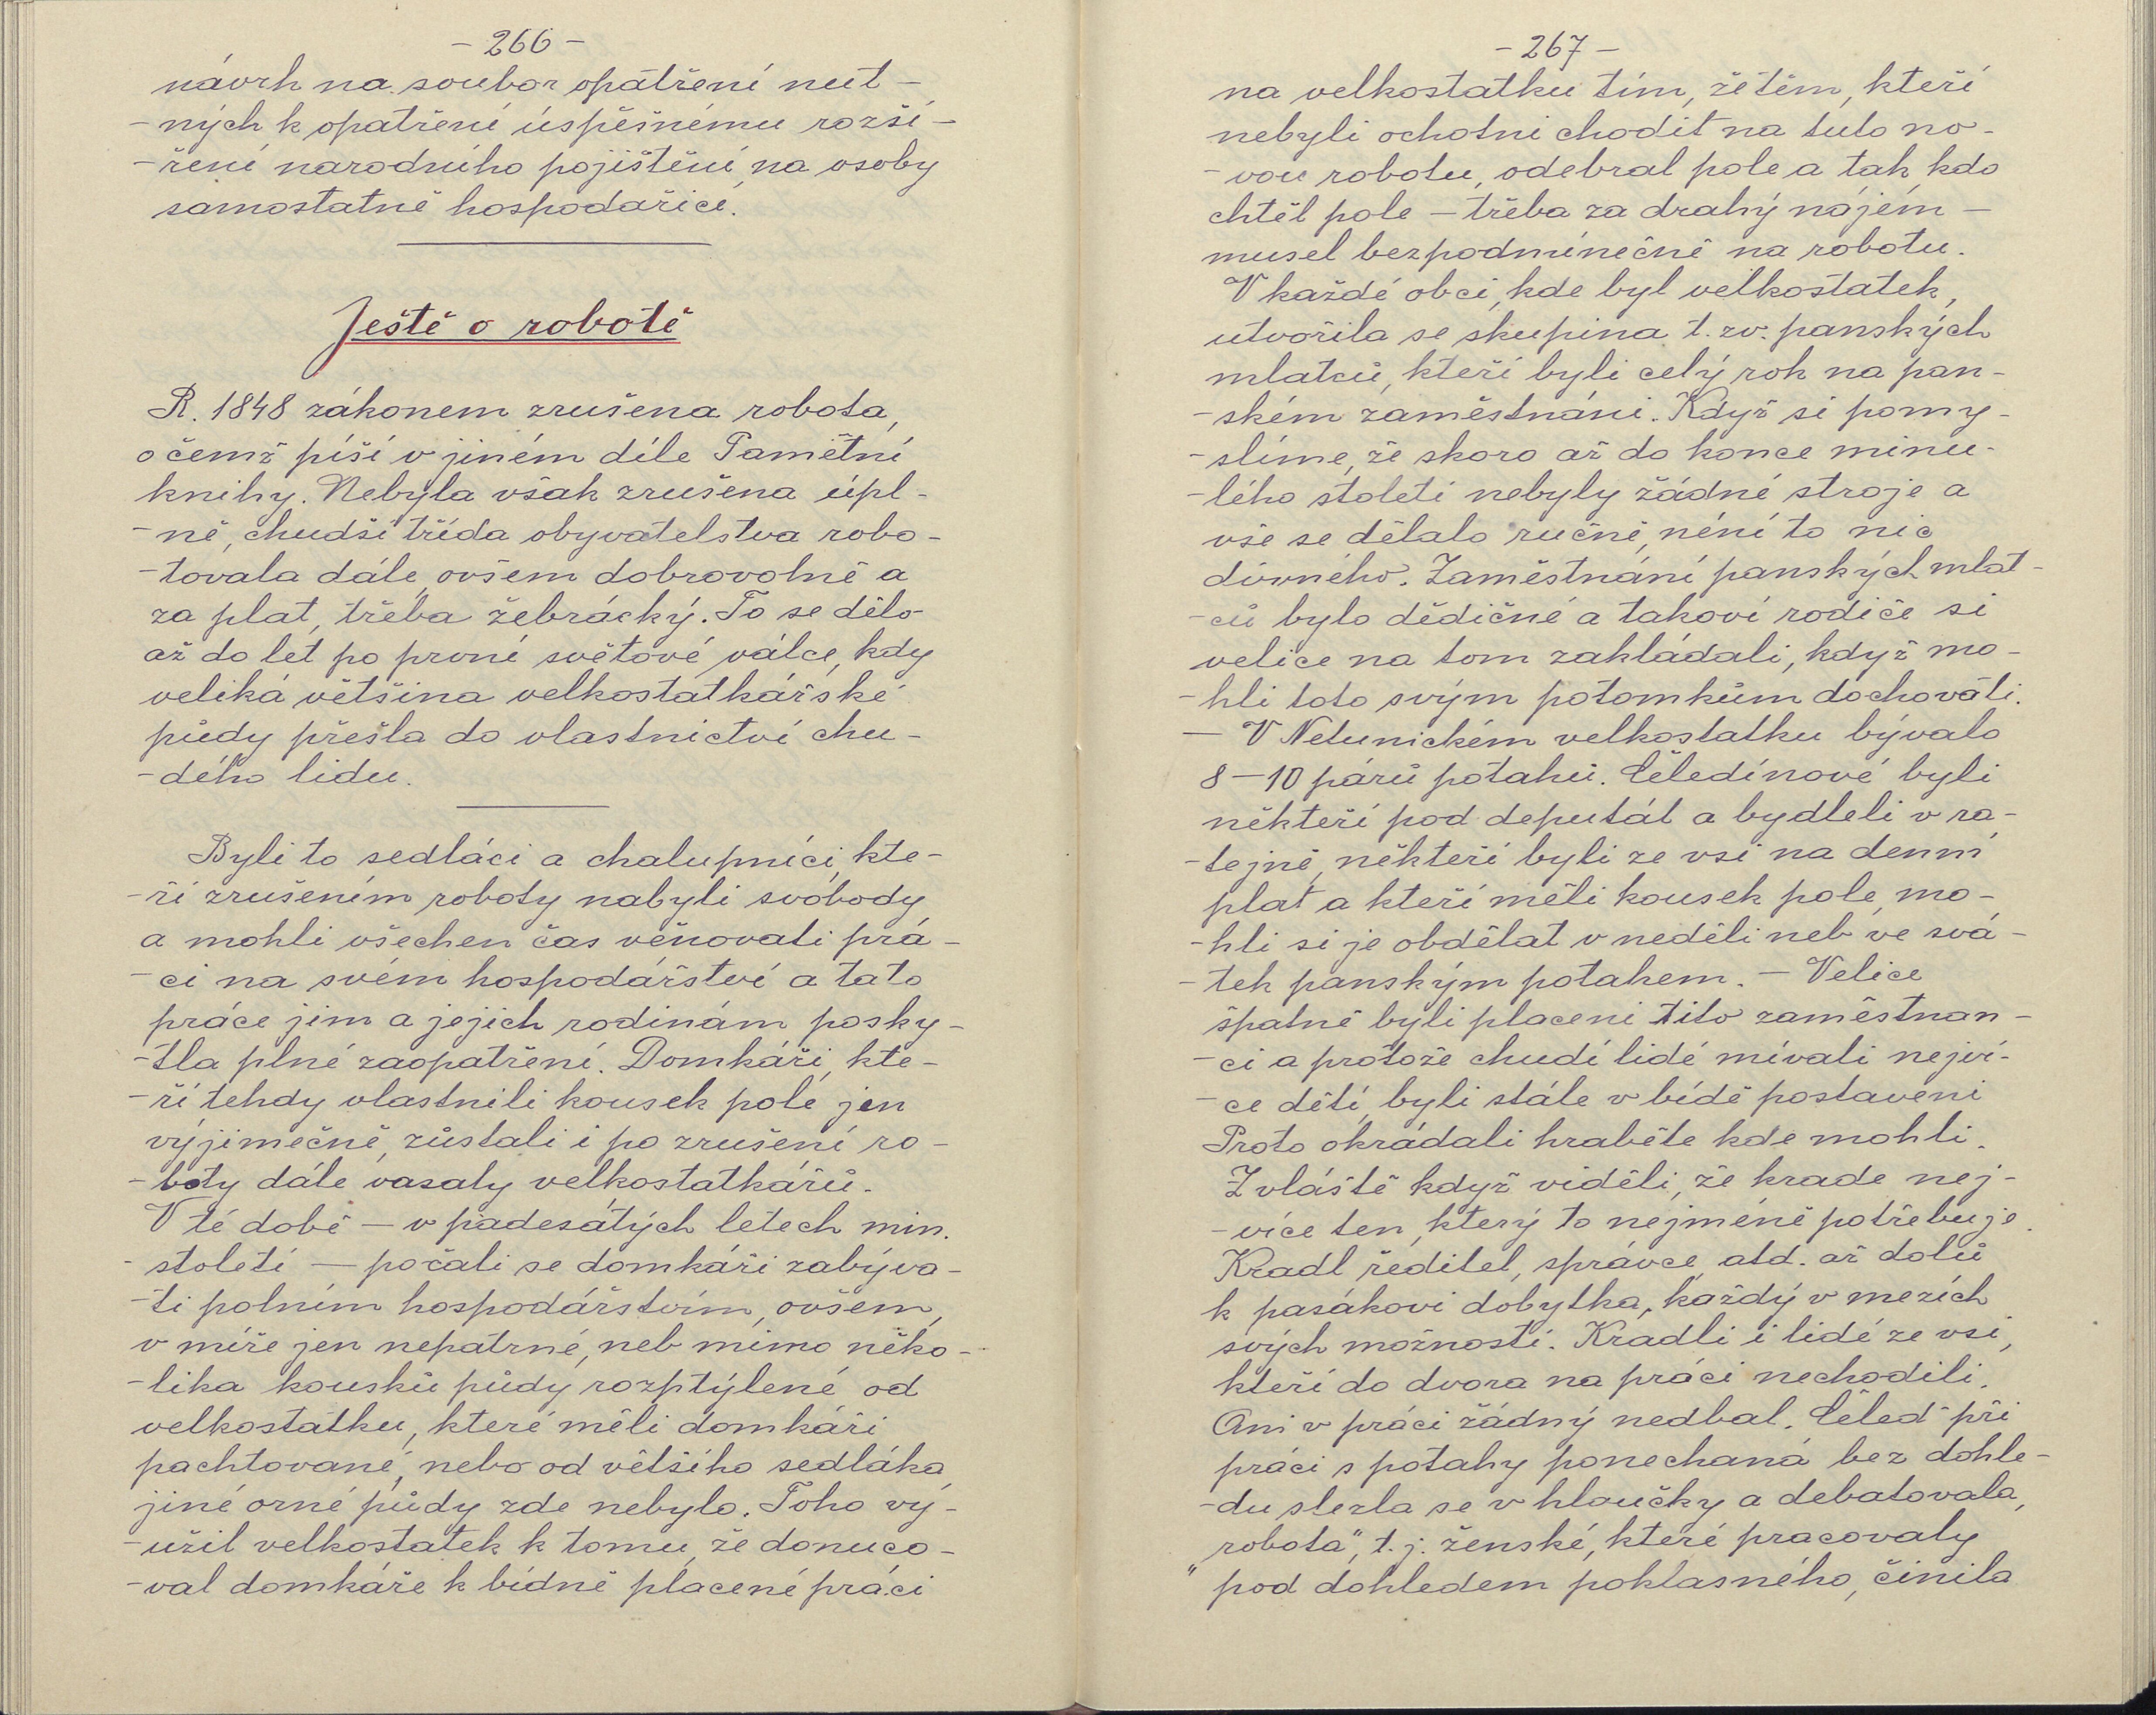 - 266 -
návrh na soubor opatření nut -
- ných k opatření úspěšnému rozší -
- ření narodního pojištění na osoby
samostatně hospodařící.
Ještě o robotě
R. 1848 zákonem zrušena robota,
o čemž píši v jiném díle Pamětní
knihy. Nebyla však zrušena úpl -
- ně, chudší třída obyvatelstva robo -
- tovala dále, ovšem dobrovolně a
za plat, třeba žebrácký. To se dělo
až do let po první světové válce, kdy
veliká většina velkostatkářské
půdy přešla do vlastnictví chu -
- dého lidu.
Byli to sedláci a chalupníci, kte -
- ří zrušením roboty nabyli svobody
a mohli všechen čas věnovati prá -
- ci na svém hospodářství a tato
práce jim a jejich rodinám posky -
- tla plné zaopatření. Domkáři, kte -
- ří tehdy vlastnili kousek pole jen
výjimečně, zůstali i po zrušení ro -
- boty dále vasaly velkostatkářů.
V té době — v padesátých letech min.
století — počali se domkáři zabýva -
- ti polním hospodářstvím, ovšem,
v míře jen nepatrné, neb mimo něko -
- lika kousků půdy rozptýlené od
velkostatku, které měli domkáři
pachtované, nebo od většího sedláka,
jiné orné půdy zde nebylo. Toho vy -
- užil velkostatek k tomu, že donuco -
- val domkáře k bídně placené práci
- 267 -
na velkostatku tím, že těm, kteří
nebyli ochotni chodit na tuto no -
- vou robotu, odebral pole a tak kdo
chtěl pole — třeba za drahý nájem —
musel bezpodmínečně na robotu.
V každé obci, kde byl velkostatek,
utvořila se skupina t. zv. panských
mlatců, kteří byli celý rok na pan -
- ském zaměstnáni. Když si pomy -
- slíme, že skoro až do konce minu -
- lého století nebyly žádné stroje a
vše se dělalo ručně, není to nic
divného. Zaměstnání panských mlat -
- ců bylo dědičné a takoví rodiče si
velice na tom zakládali, když mo -
- hli toto svým potomkům dochovati.
— V Netunickém velkostatku bývalo
8 — 10 párů potahů. Čeledínové byli
někteří pod deputát a bydleli v ra -
- tejně, někteří byli ze vsi na denní
plat a kteří měli kousek pole, mo -
- hli si je obdělat v neděli neb ve svá -
- tek panským potahem. — Velice
špatně byli placeni tito zaměstnan -
- ci a protože chudí lidé mívali nejví -
- ce dětí, byli stále v bídě postaveni
Proto okrádali hraběte kde mohli.
Zvláště když viděli, že krade nej -
- více ten, který to nejméně potřebuje.
Kradl ředitel, správce, atd. až dolů
k pasákovi dobytka, každý v mezích
svých možností. Kradli i lidé ze vsi,
kteří do dvora na práci nechodili.
Ani v práci žádný nedbal. Čeleď při
práci s potahy ponechaná bez dohle -
- du slezla se v hloučky a debatovala,
robota", t. j. ženské, které pracovaly
" pod dohledem poklasného, činila